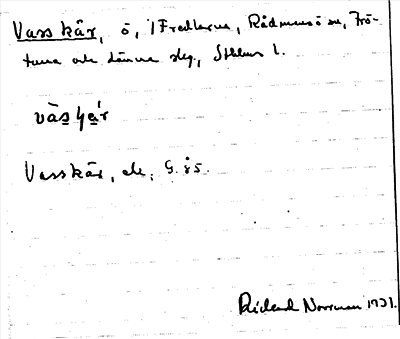 Vasskär, ö, i Fredlarna, Rådmansö sn, Frö-
tuna och Länna skg., Sthlms l.
vàsʃæ̀r
Vasskär, ek. G. 85.
Rickard Norrman 1931.